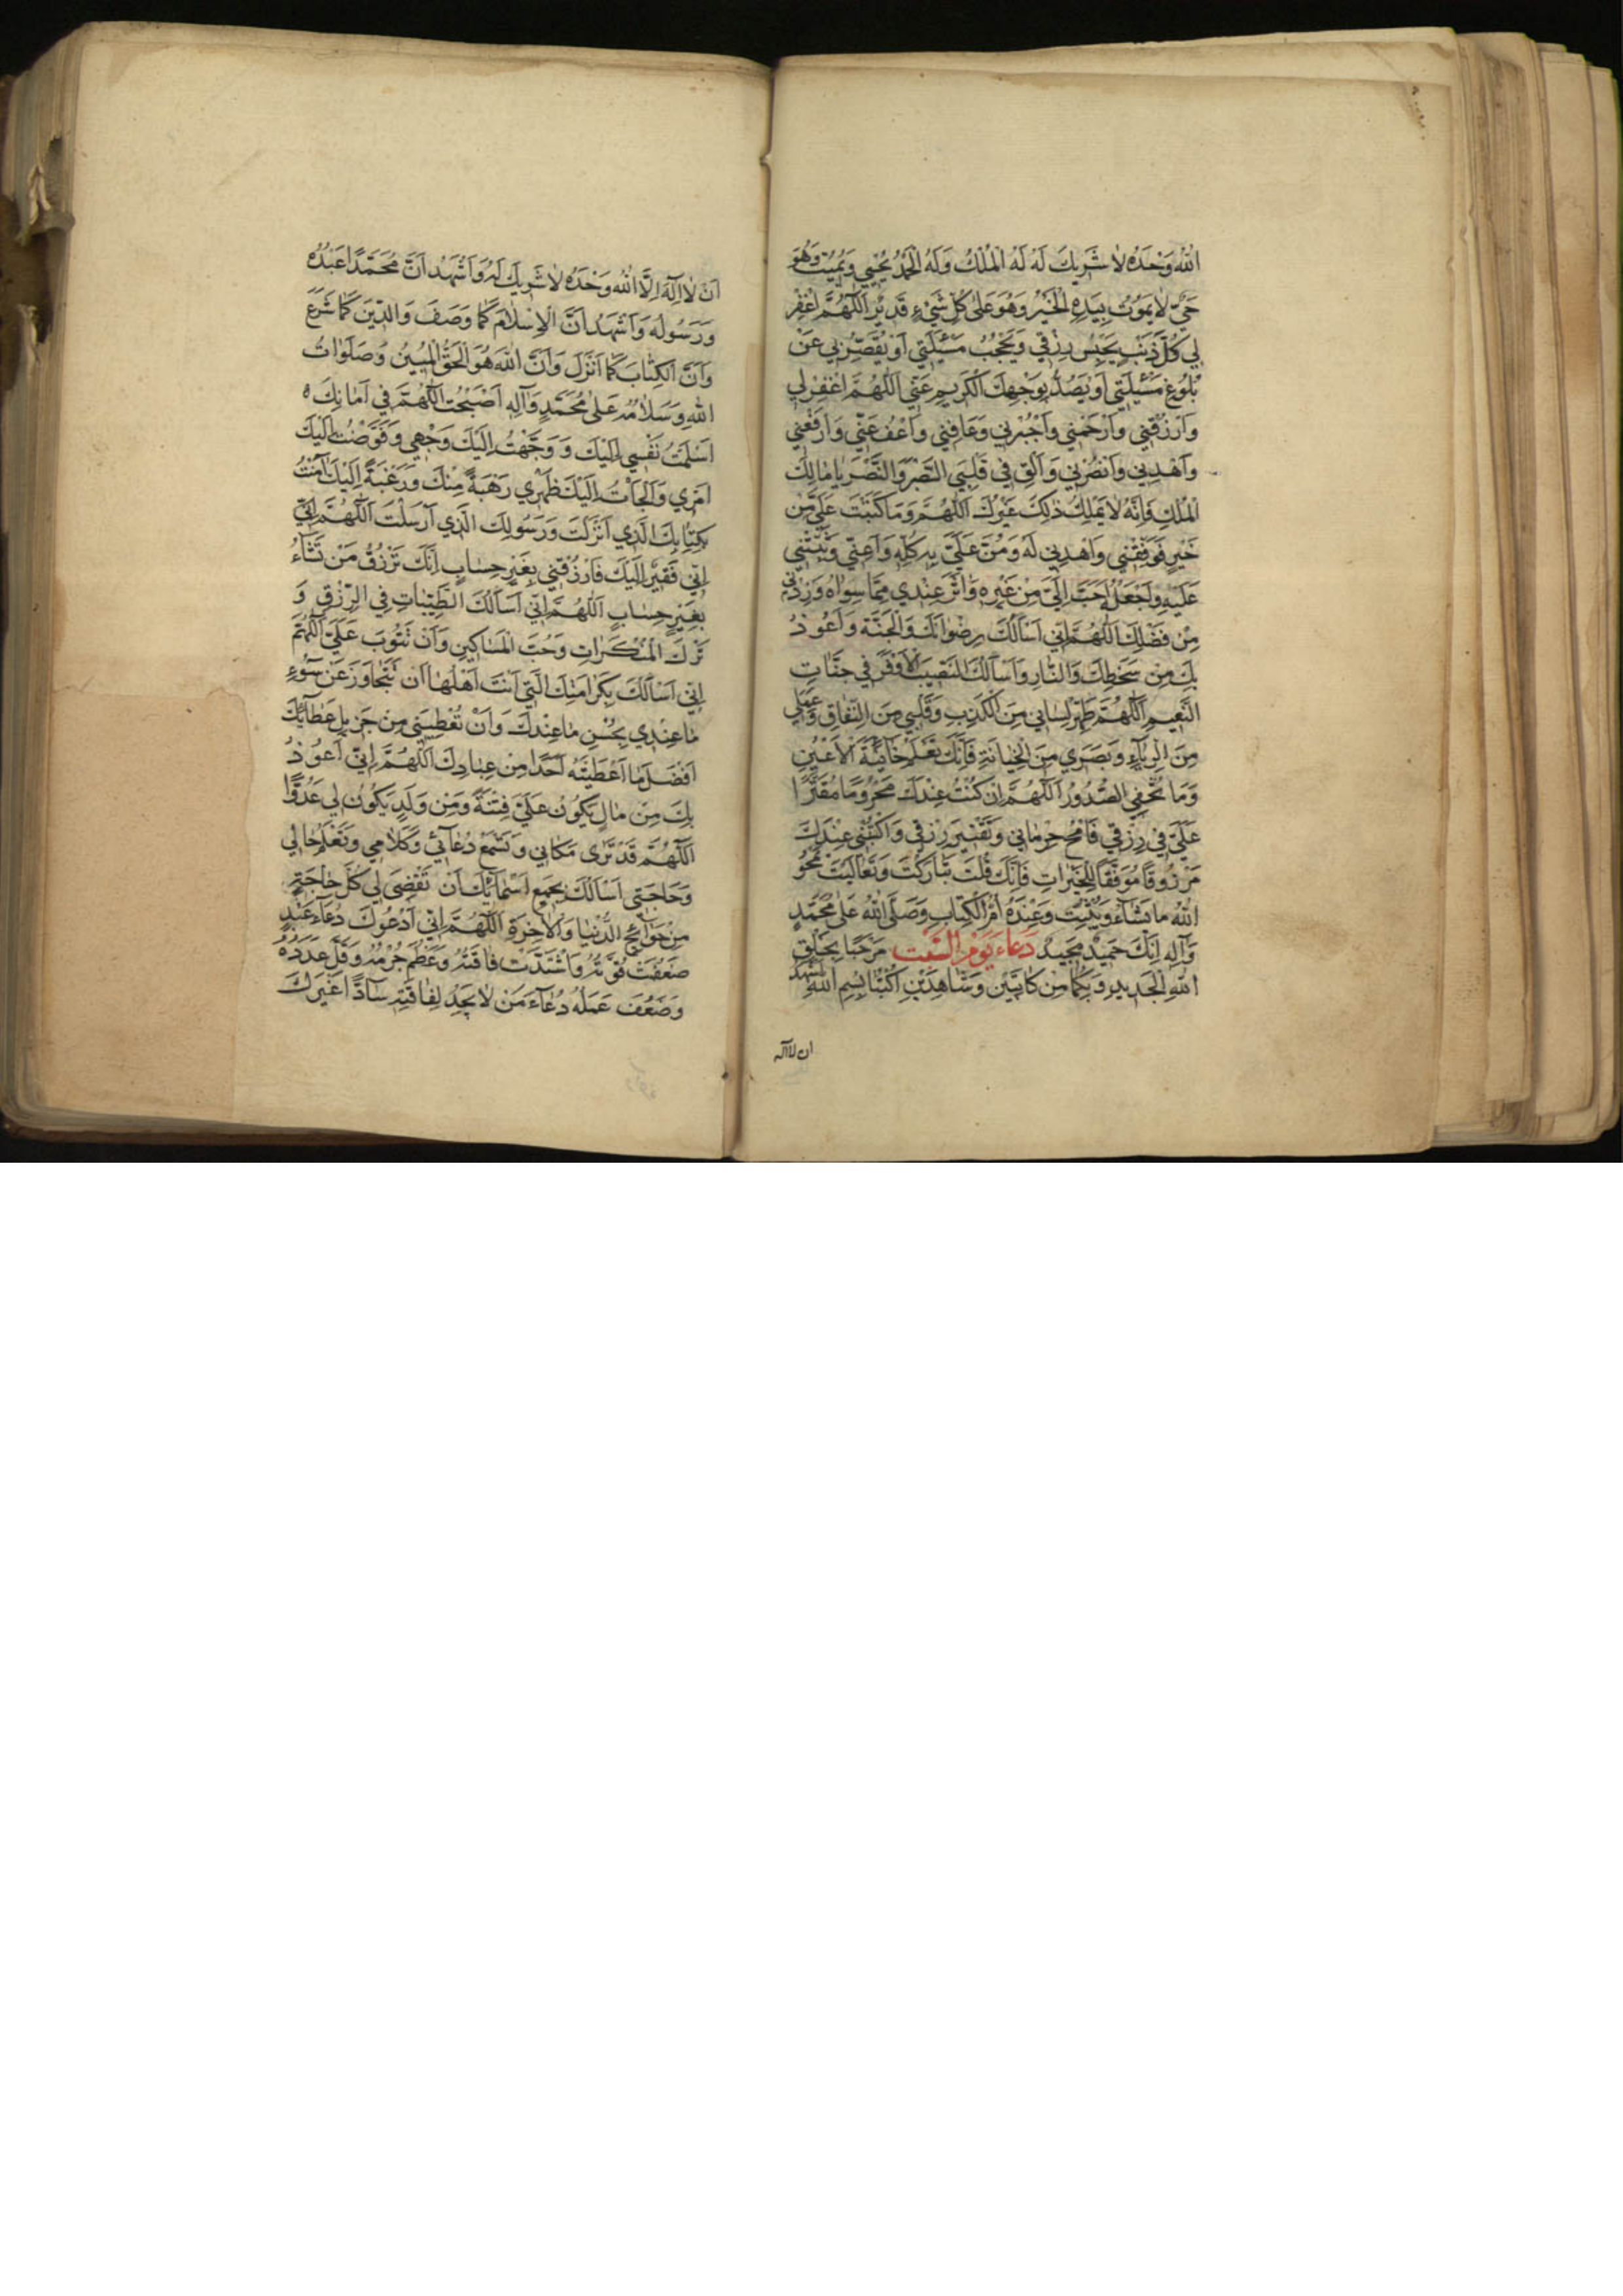 الله وَحْدَهُ لا شَرِيكَ لَهُ لَهُ الْمُلْكُ وَلَهُ الْحَمْدُ يُحْيِي وَيُمِيتُ وَهُوَ
حَيٌّ لا يَمُوتُ بِيَدِهِ الْخَيْرُ وَهُوَ عَلى كُلِّ شَيْءٍ قَدِيرٌ اَللّهُمَّ اغْفِرْ
لِي كُلَّ ذَنْبٍ يَحْبِسُ رِزْقِي وَيَحْجُبُ مَسْئَلَتِي اَوْ يُقَصِّرُ بِي عَنْ
بُلُوغِ مَسْئَلَتِي اَوْ يَصُدُّ بِوَجْهِكَ الْكَرِيمِ عَنِّي اَللّهُمَّ اغْفِرْ لِي
وَارْزُقْنِي وَارْحَمْنِي وَاجْبُرْنِي وَعَافِنِي وَاعْفُ عَنِّي وَارْفَعْنِي
وَاهْدِنِي وَانْصُرْنِي وَاَلْقِ فِي قَلْبِي الصَّبْرَ وَالنَّصْرَ يا مالِكَ
الْمُلْكِ فَاِنَّهُ لا يَمْلِكُ ذلِكَ غَيْرُكَ اَللّهُمَّ وَمَا كَتَبْتَ عَلَيَّ مِنْ
خَيْرٍ فَوَفِّقْنِي وَاهْدِنِي لَهُ وَمُنَّ عَلَيَّ بِهِ كُلِّهِ وَاَعِنِّي وَثَبِّتْنِي
عَلَيْهِ وَاجْعَلْهُ اَحَبَّ اِلَيَّ مِنْ غَيْرِهِ وَاثَرَ عِنْدِي مِمَّا سِواهُ وَزِدْنِي
مِنْ فَضْلِكَ اَللّهُمَّ اِنِّي اَسْاَلُكَ رِضْوانَكَ وَالْجَنَّةَ وَاَعُوذُ
بِكَ مِنْ سَخَطِكَ وَالنّارِ وَاَسْاَلُكَ النَّصِيبَ الْاَوْفَرَ فِي جَنّاتِ
النَّعِيمِ اَللّهُمَّ طَهِّرْ لِسانِي مِنَ الْكَذِبِ وَقَلْبِي مِنَ النِّفاقِ وَعَمَلِي
مِنَ الرِّياءِ وَبَصَرِي مِنَ الْخِيانَةِ فَاِنَّكَ تَعْلَمُ خائِنَةَ الْاَعْيُنِ
وَمَا تُخْفِي الصُّدُورُ اَللّهُمَّ اِنْ كُنْتُ عِنْدَكَ مَحْرُومًا مُقَتَّرًا
عَلَيَّ فِي رِزْقِي فَامْحُ حِرْمانِي وَتَقْتِيرَ رِزْقِي وَاكْتُبْنِي عِنْدَكَ
مَرْزُوقًا مُوَفَّقًا لِلْخَيْراتِ فَاِنَّكَ قُلْتَ تَبارَكْتَ وَتَعالَيْتَ يَمْحُو
اللهُ ما يَشاءُ وَيُثْبِتُ وَعِنْدَهُ اُمُّ الْكِتابِ وَصَلَّى اللهُ عَلى مُحَمَّدٍ
وَآلِهِ اِنَّكَ حَمِيدٌ مَجِيدٌ دُعاءُ يَوْمِ السَّبْتِ مَرْحَبًا بِخَلْقِ
اللهِ الْجَدِيدِ وَبِكُما مِنْ كاتِبَيْنِ وَشاهِدَيْنِ اكْتُبا بِسْمِ اللهِ اَشْهَدُ
ان لا اله
اَنْ لا اِلهَ اِلَّا اللهُ وَحْدَهُ لا شَرِيكَ لَهُ وَاَشْهَدُ اَنَّ مُحَمَّدًا عَبْدُهُ
وَرَسُولُهُ وَاَشْهَدُ اَنَّ الْاِسْلامَ كَما وَصَفَ وَالدِّينَ كَما شَرَعَ
وَاَنَّ الْكِتابَ كَما اَنْزَلَ وَاَنَّ اللهَ هُوَ الْحَقُّ الْمُبِينُ وَصَلَواتُ
اللهِ وَسَلامُهُ عَلى مُحَمَّدٍ وَآلِهِ اَصْبَحْتُ اللّهُمَّ فِي اَمانِكَ
اَسْلَمْتُ نَفْسِي اِلَيْكَ وَ وَجَّهْتُ اِلَيْكَ وَجْهِي وَفَوَّضْتُ اِلَيْكَ
اَمْرِي وَاَلْجَاْتُ اِلَيْكَ ظَهْرِي رَهْبَةً مِنْكَ وَرَغْبَةً اِلَيْكَ آمَنْتُ
بِكِتابِكَ الَّذِي اَنْزَلْتَ وَرَسُولِكَ الَّذِي اَرْسَلْتَ اَللّهُمَّ اِنِّي
اِنِّي فَقِيرٌ اِلَيْكَ فَارْزُقْنِي بِغَيْرِ حِسابٍ اِنَّكَ تَرْزُقُ مَنْ تَشاءُ
بِغَيْرِ حِسابٍ اَللّهُمَّ اِنِّي اَسْاَلُكَ الطَّيِّباتِ فِي الرِّزْقِ وَ
تَرْكَ الْمُنْكَراتِ وَحُبَّ الْمَساكِينِ وَاَنْ تَتُوبَ عَلَيَّ اَللّهُمَّ
اِنِّي اَسْاَلُكَ بِكَرامَتِكَ الَّتِي اَنْتَ اَهْلُها اَنْ تَتَجاوَزَ عَنْ سُوءِ
ما عِنْدِي بِحُسْنِ ما عِنْدَكَ وَاَنْ تُعْطِيَنِي مِنْ جَزِيلِ عَطائِكَ
اَفْضَلَ ما اَعْطَيْتَهُ اَحَدًا مِنْ عِبادِكَ اَللّهُمَّ اِنِّي اَعُوذُ
بِكَ مِنْ مالٍ يَكُونُ عَلَيَّ فِتْنَةً وَمِنْ وَلَدٍ يَكُونُ لِي عَدُوًّا
اَللّهُمَّ قَدْ تَرى مَكانِي وَتَسْمَعُ دُعائِي وَكَلامِي وَتَعْلَمُ حالِي
وَحاجَتِي اَسْاَلُكَ بِجَمِيعِ اَسْمائِكَ اَنْ تَقْضِيَ لِي كُلَّ حاجَةٍ
مِنْ حَوائِجِ الدُّنْيا وَالْاخِرَةِ اَللّهُمَّ اِنِّي اَدْعُوكَ دُعاءَ عَبْدٍ
ضَعُفَتْ قُوَّتُهُ وَاشْتَدَّتْ فاقَتُهُ وَعَظُمَ جُرْمُهُ وَقَلَّ عَدَدُهُ
وَضَعُفَ عَمَلُهُ دُعاءَ مَنْ لا يَجِدُ لِفاقَتِهِ سادًّا غَيْرَكَ